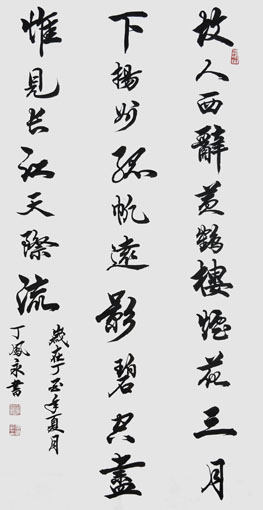 故人西辭黃鶴樓煙花三月
下揚州孤帆遠影碧空盡
惟見長江天際流
歲在丁丑年夏月
丁鳳永書